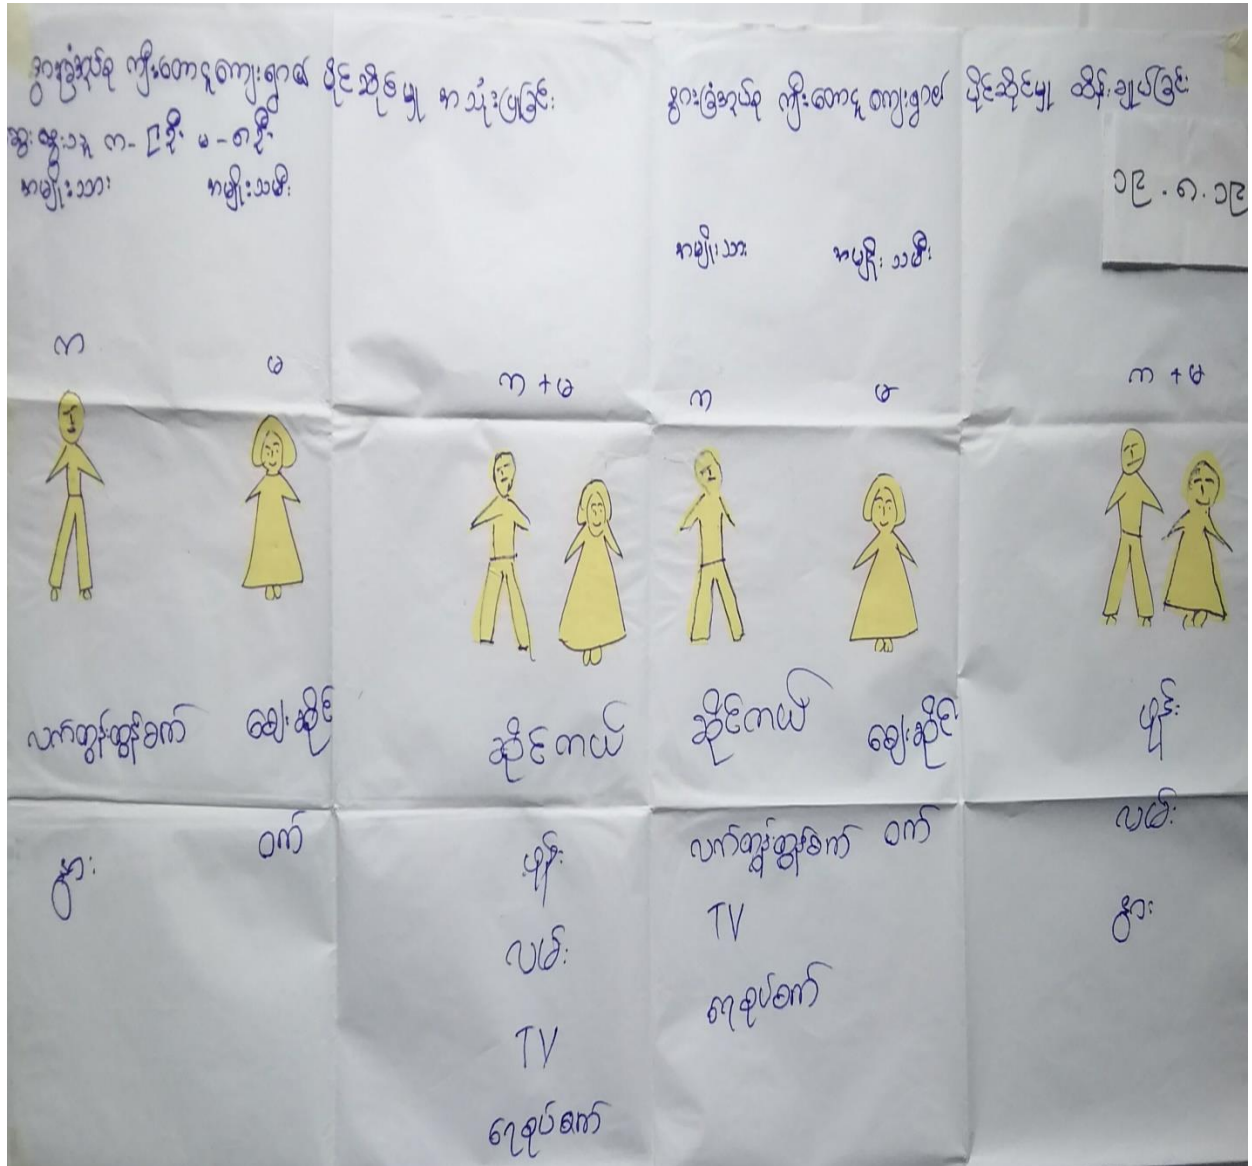 နွားခြံအုပ်စု ကျီးတောင့ကျေးရွာ၏ ပိုင်ဆိုင်မှု အသုံးပြုခြင်း
ဆွေးနွေးသူ က-၉ဦး မ-၈ဦး
အမျိုးသား အမျိုးသမီး
က မ က + မ
လက်တွန်းထွန်စက် ဈေးဆိုင် ဆိုင်ကယ်
နွား ဝက် ဖုန်း
လမ်း
TV
ရေစုပ်စက်
နွားခြံအုပ်စု ကျီးတောင့ကျေးရွာ၏ ပိုင်ဆိုင်မှု ထိန်းချုပ်ခြင်း
၁၉.၈.၁၉
အမျိုးသား အမျိုးသမီး
က မ က + မ
ဆိုင်ကယ် ဈေးဆိုင် ဖုန်း
လက်တွန်းထွန်စက် ဝက် လမ်း
TV နွား
ရေစုပ်စက်